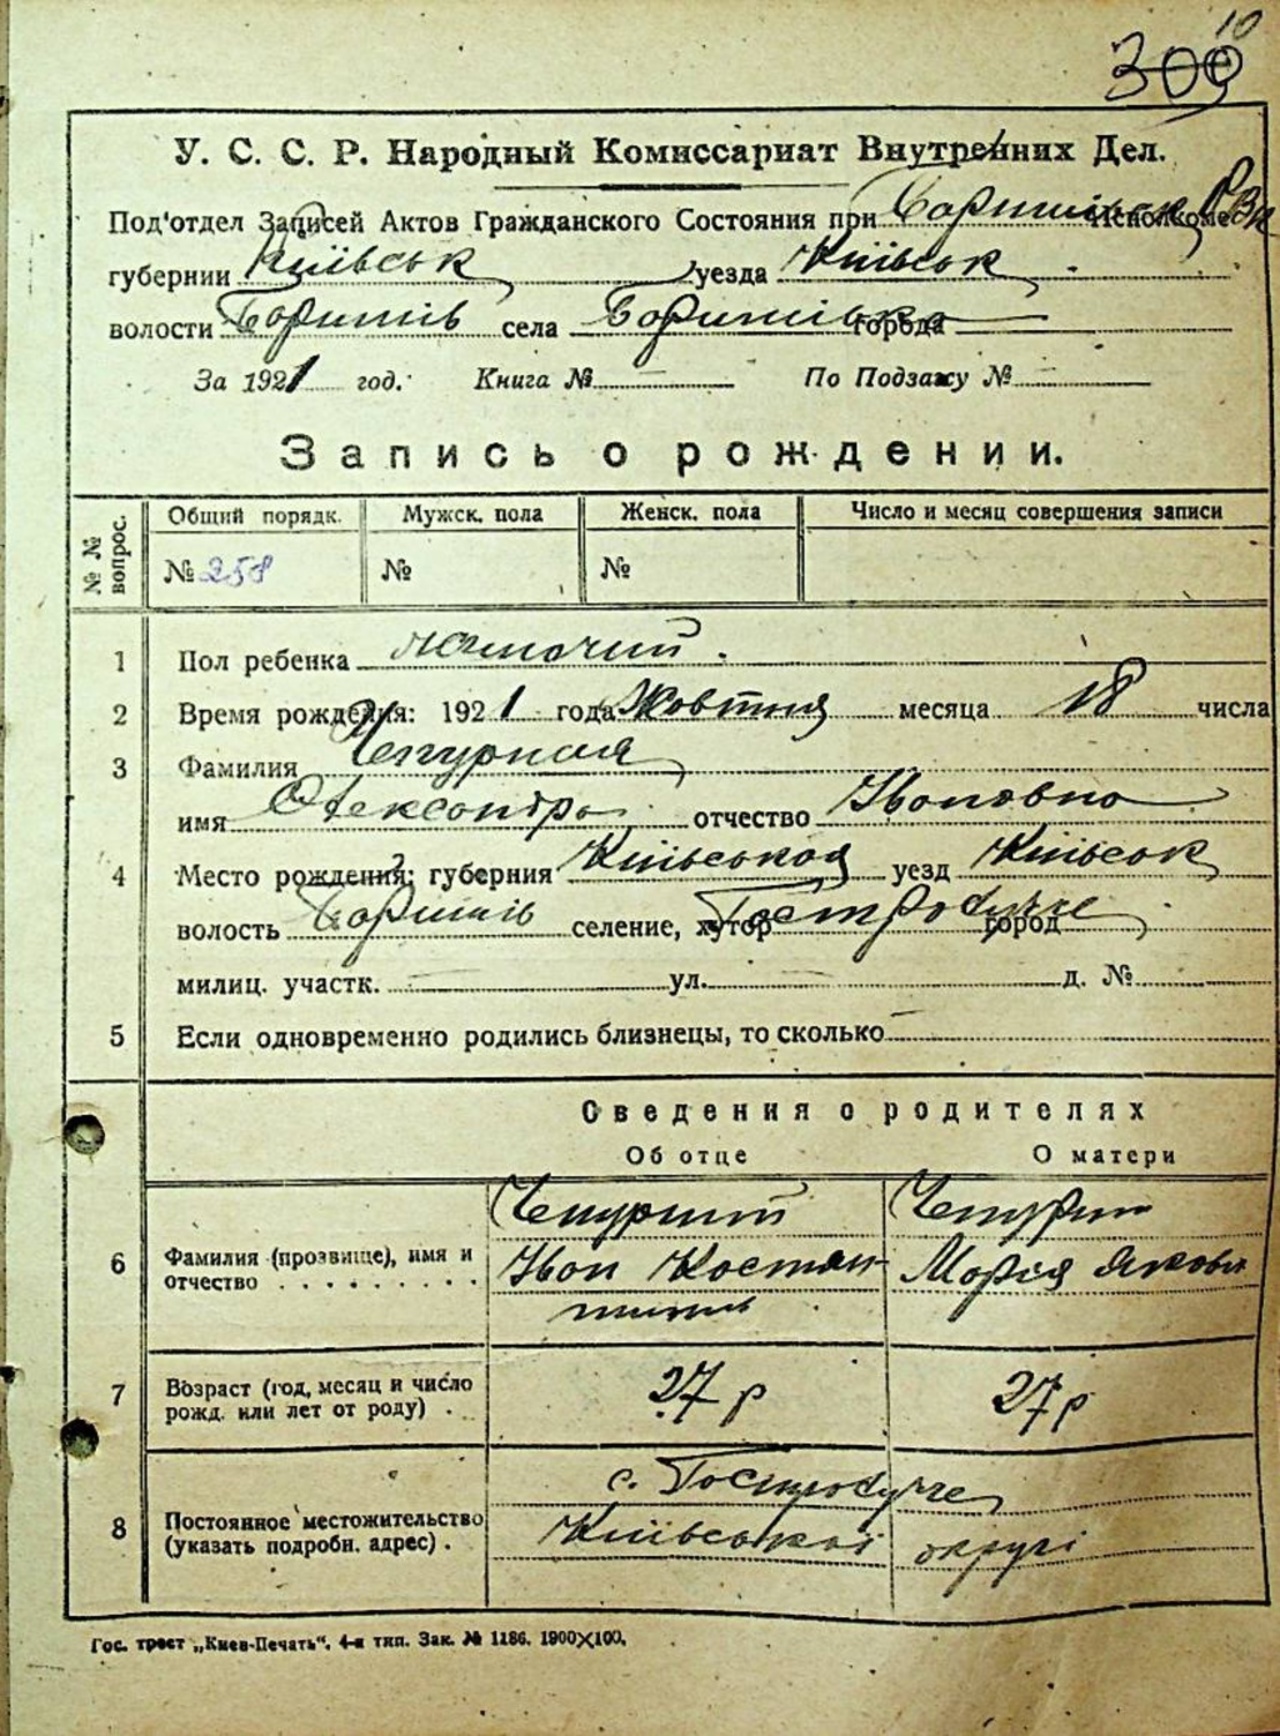 10
309
У. С. С. Р. Народный Комиссариат Внутренних Дел.
Под'отдел Записей Актов Гражданского Состояния при Баришівськ РВК Исполкоме
губернии Київськ уезда Київськ
волости Баришів села Баришівка города
За 1921 год. Книга № По Подзажу №
Запись о рождении.
№№ вопрос. Общий порядк. Мужск. пола Женск. пола Число и месяц совершения записи
№ 258 № №
1 Пол ребенка жіночий.
2 Время рождения: 1921 года Жовтня месяца 18 числа
3 Фамилия Чепурная
имя Олександра отчество Івановна
4 Место рождения: губерния Київськая уезд Київськ
волость Баришів селение, хутор город Гостролуччє
милиц. участк. ул. д. №
5 Если одновременно родились близнецы, то сколько
Сведения о родителях
Об отце О матери
Чепурний Чепурн
6 Фамилия (прозвище), имя и отчество Іван Костян- Марія Яковл
тинов
7 Возраст (год, месяц и число рожд. или лет от роду) 27 р 27 р
с. Гостролуччє
8 Постоянное местожительство (указать подробн. адрес). Київської округі
Гос. трест „Киев-Печать“. 4-я тип. Зак. № 1186. 1900×100.